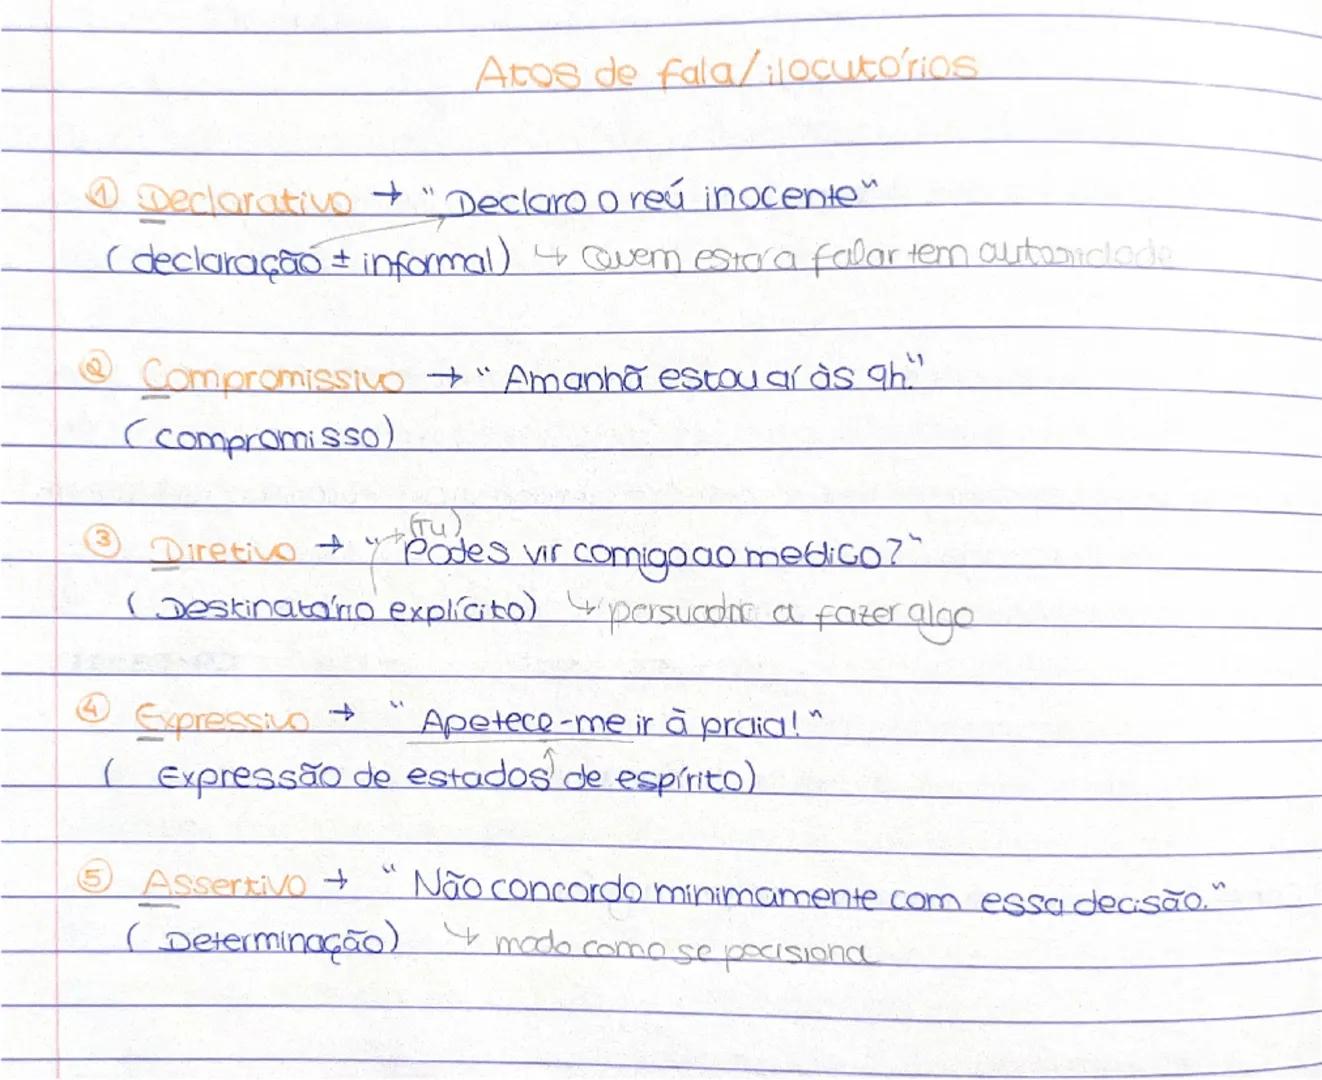 Atos de fala/ilocutórios
① Declarativo → "Declaro o reú inocente"
(declaração ± informal) ↳ Quem está a falar tem autoridade
② Compromissivo → "Amanhã estou aí às 9h."
(compromisso)
(Tu)
③ Diretivo → "Podes vir comigo ao médico?"
(Destinatário explícito) ↳ persuadir a fazer algo
④ Expressivo → "Apetece-me ir à praia!"
(Expressão de estados de espírito)
⑤ Assertivo → "Não concordo minimamente com essa decisão."
(Determinação) ↳ modo como se posiciona